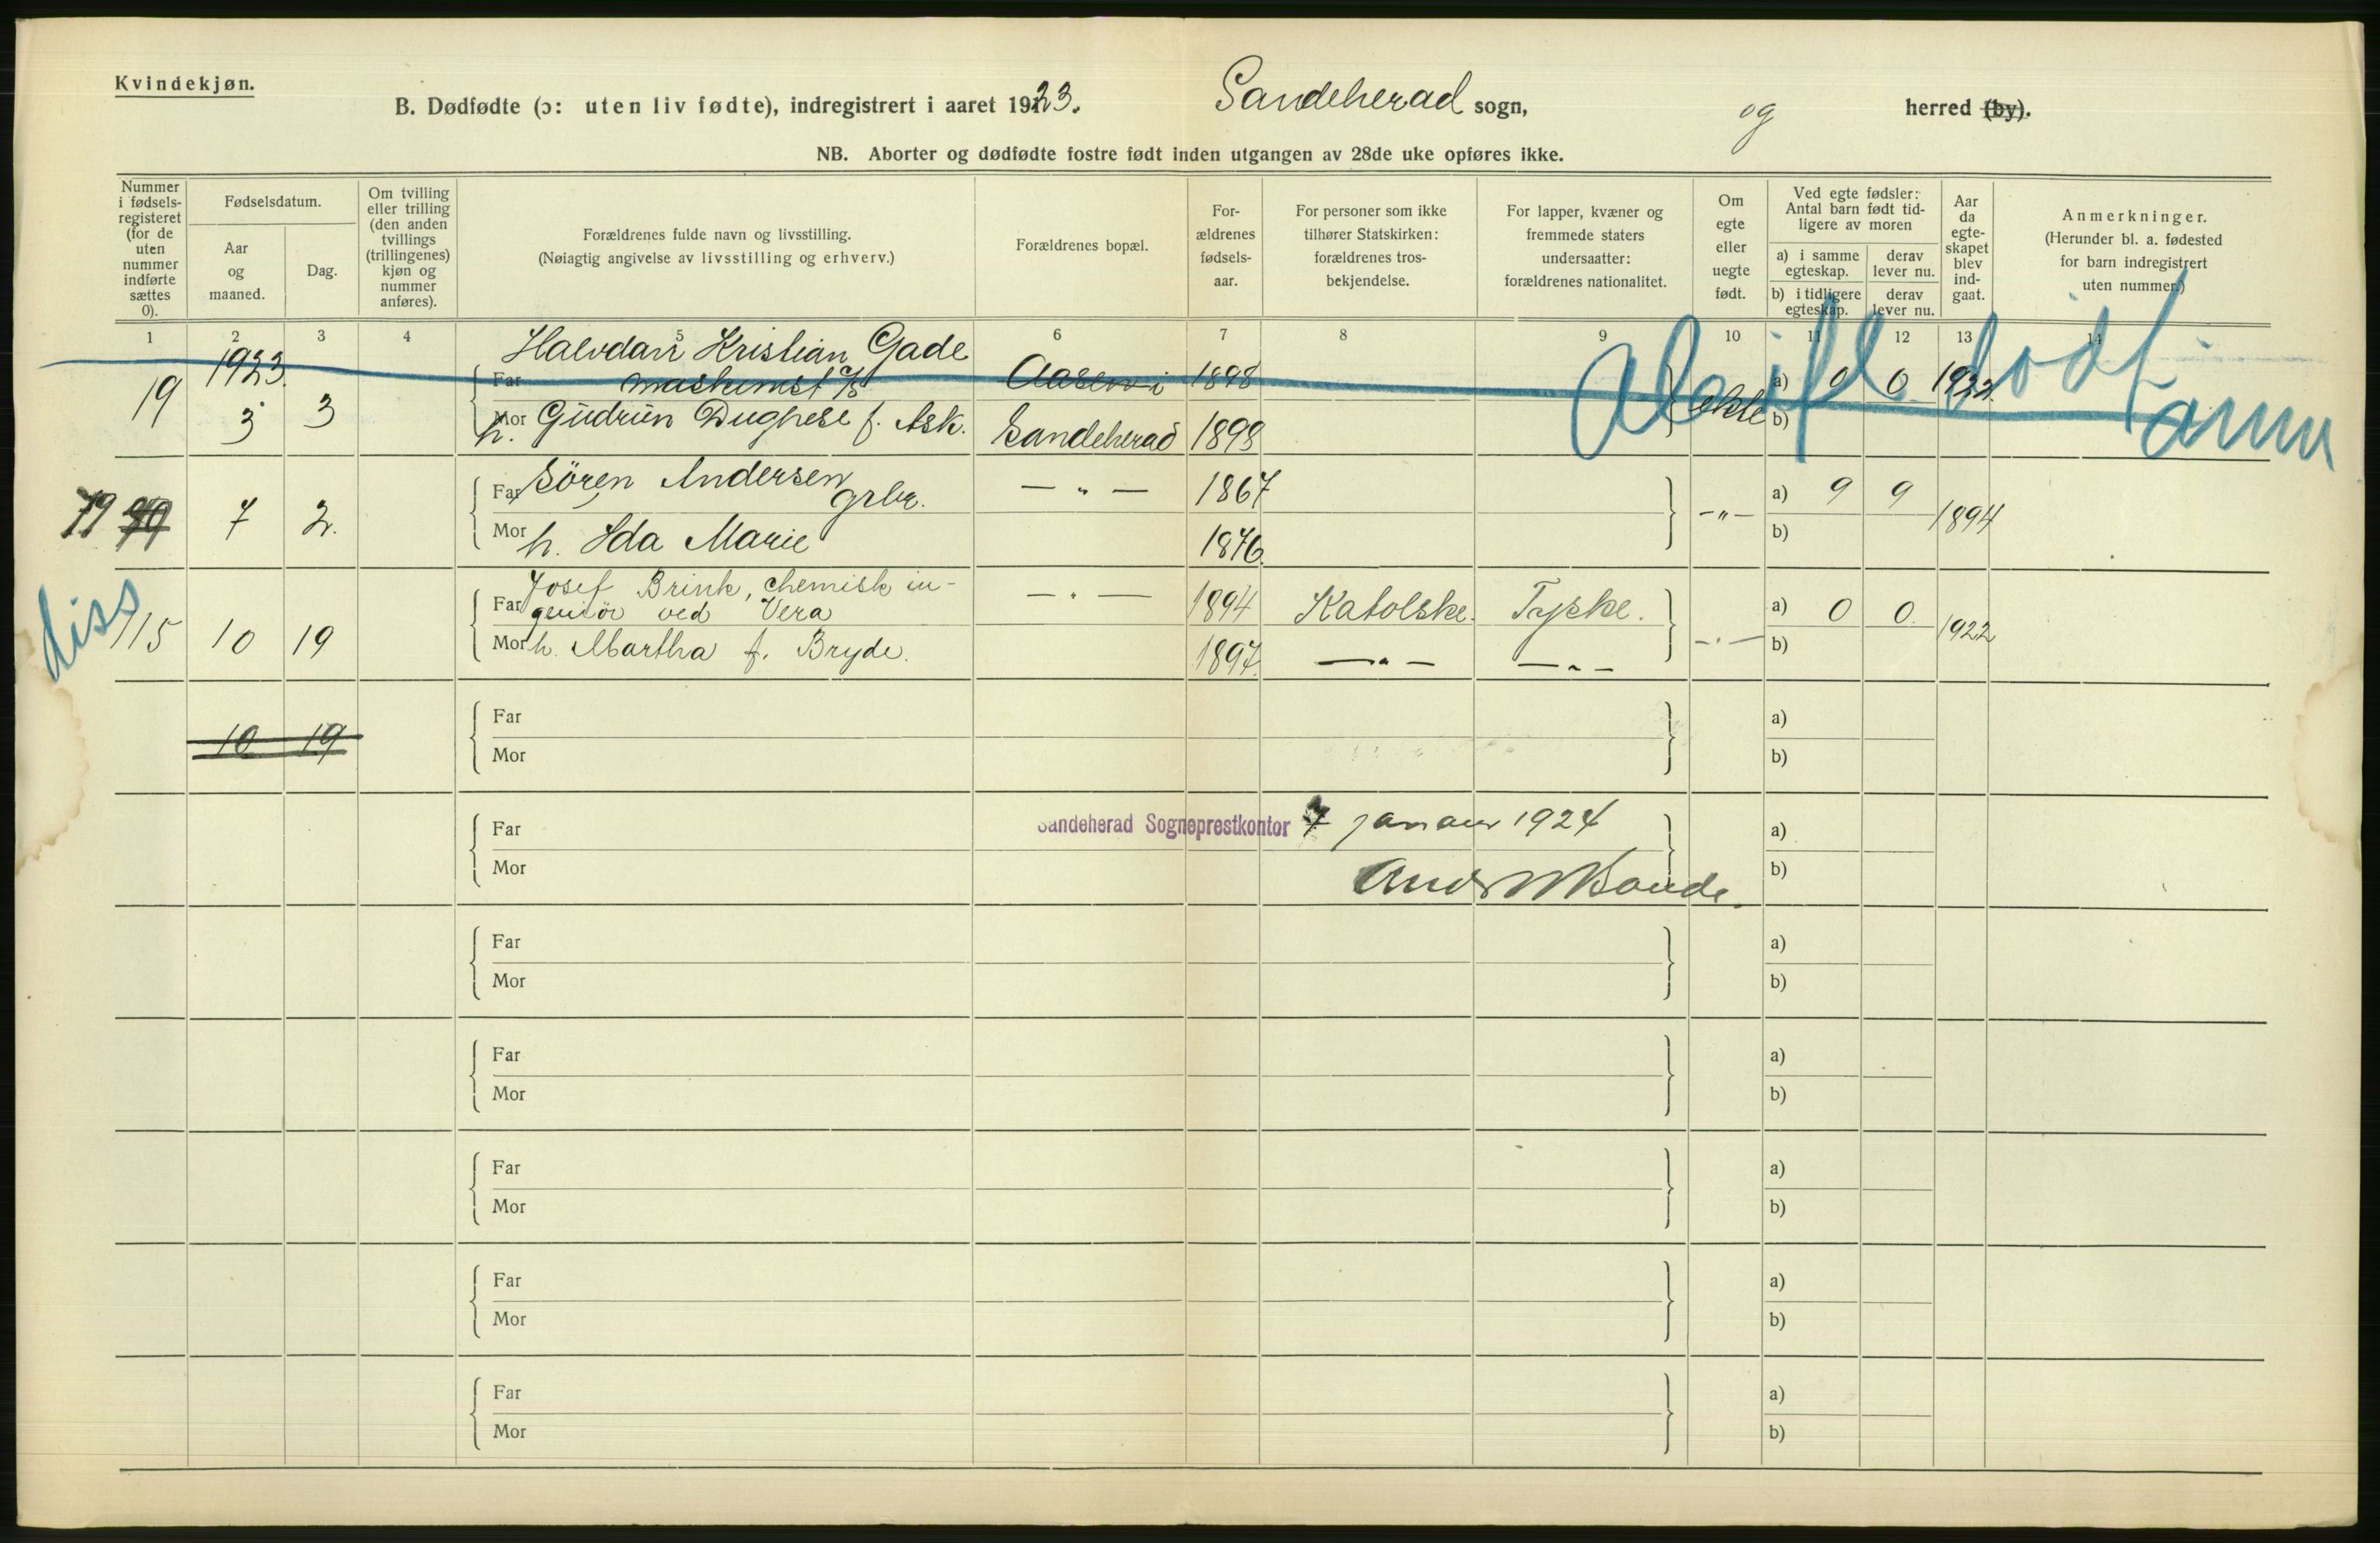 Kvindekjøn.
B. Dødfødte (ɔ: uten liv fødte), indregistrert i aaret 1923. Sandeherad sogn, og herred (by).
NB. Aborter og dødfødte fostre født inden utgangen av 28de uke opføres ikke.
Nummer i fødsels-registeret (for de uten nummer indførte sættes 0).
Fødselsdatum.
Aar og maaned.
Dag.
Om tvilling eller trilling (den anden tvillings (trillingenes) kjøn og nummer anføres).
Forældrenes fulde navn og livsstilling.
(Nøiagtig angivelse av livsstilling og erhverv.)
Forældrenes bopæl.
For-ældrenes fødsels-aar.
For personer som ikke tilhører Statskirken: forældrenes tros-bekjendelse.
For lapper, kvæner og fremmede staters undersaatter: forældrenes nationalitet.
Om egte eller uegte født.
Ved egte fødsler: Antal barn født tid-ligere av moren
a) i samme egteskap.
derav lever nu.
b) i tidligere egteskap.
derav lever nu.
Aar da egte-skapet blev ind-gaat.
Anmerkninger.
(Herunder bl. a. fødested for barn indregistrert uten nummer.)
1 2 3 4 5 6 7 8 9 10 11 12 13 14
1923.
Halvdan Kristian Gade
19 3 3 Far maskinist 1898 ekte a) 0 0 1922
Mor h. Gudrun f. Ask. Sandeherad 1898 b)
født
79 7 2. Far Sören Andersen grbr. — " — 1867 — " — a) 9 9 1894
Mor h. Ida Marie 1876. b)
diss
115 10 19 Far Josef Brink, chemisk in-
geniör ved Vera — " — 1894 Katolske. Tyske. — " — a) 0 0. 1922
Mor h. Martha f. Bryde. 1897. — " — — " — b)
10 19 Far a)
Mor b)
Far Sandeherad Sogneprestkontor 7 januar 1924 a)
Mor b)
Far a)
Mor b)
Far a)
Mor b)
Far a)
Mor b)
Far a)
Mor b)
Far a)
Mor b)